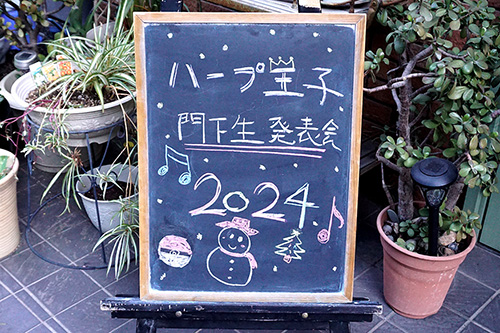 ハープ王子
門下生発表会
2024